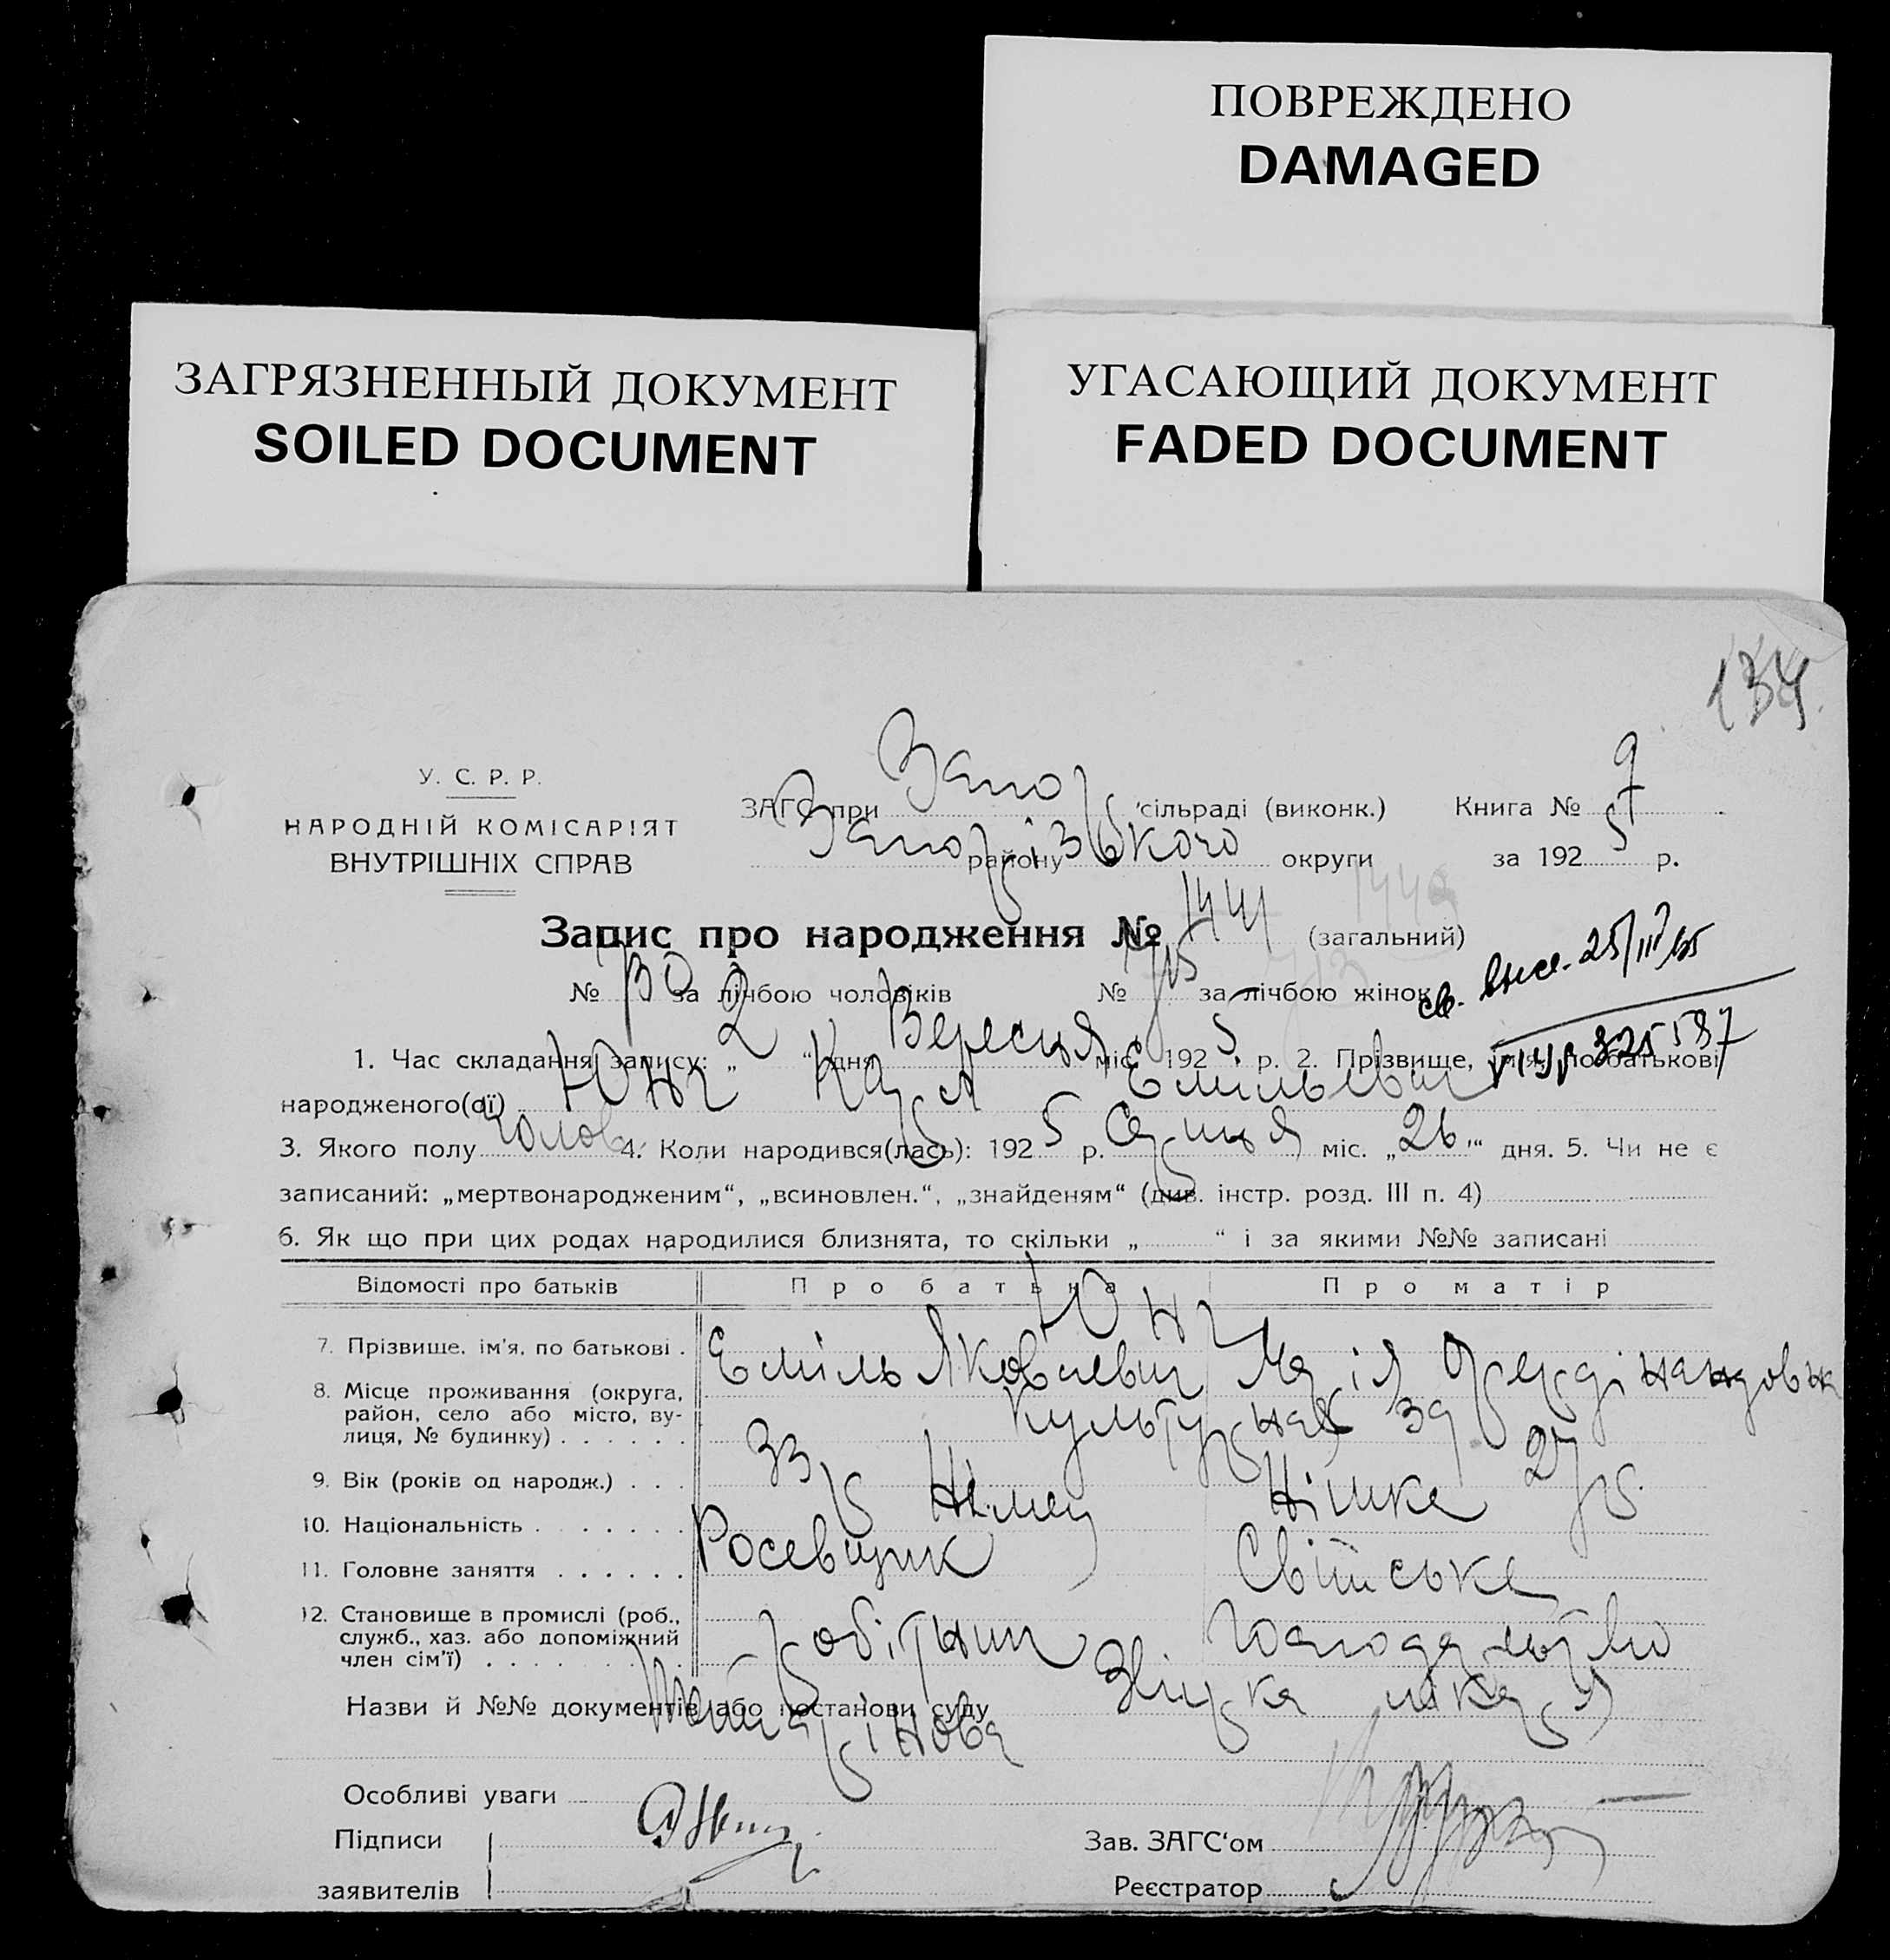 ПОВРЕЖДЕНО
DAMAGED
ЗАГРЯЗНЕННЫЙ ДОКУМЕНТ
SOILED DOCUMENT
УГАСАЮЩИЙ ДОКУМЕНТ
FADED DOCUMENT
134
У. С. Р. Р.
НАРОДНІЙ КОМІСАРІЯТ
ВНУТРІШНІХ СПРАВ
ЗАГС при Запор сільраді (виконк.) Книга № 9
Запорізького району округи за 1925 р.
Запис про народження № 1441 (загальний)
№ за лічбою чоловіків № за лічбою жінок
1. Час складання запису: „2“ дня Вересня міс. 1925 р. 2. Прізвище, ім'я, по батькові
народженого(ої) Юнг Карл Емільевич
325597
3. Якого полу Чолов. 4. Коли народився(лась): 1925 р. Серпня міс. „26“ дня. 5. Чи не є
записаний: „мертвонародженим“, „всиновлен.“, „знайденям“ (див. інстр. розд. III п. 4)
6. Як що при цих родах народилися близнята, то скільки „ “ і за якими №№ записані
Відомості про батьків Про батька Про матір
Юнг
7. Прізвище, ім'я, по батькові . Еміль Яковлевич Марія Фердінандовна
8. Місце проживання (округа, район, село або місто, вулиця, № будинку) . . . . . . Культурная 39
9. Вік (років од народж.) . . . 33 р 27 р.
10. Національність . . . . . . . Німец Німка
11. Головне заняття . . . . . .
12. Становище в промислі (роб., служб., хаз. або допоміжний член сім'ї) . . . . . . . Робітник
Назви й №№ документів або постанови суду
Особливі уваги
Підписи
заявителів
Зав. ЗАГС'ом
Реєстратор